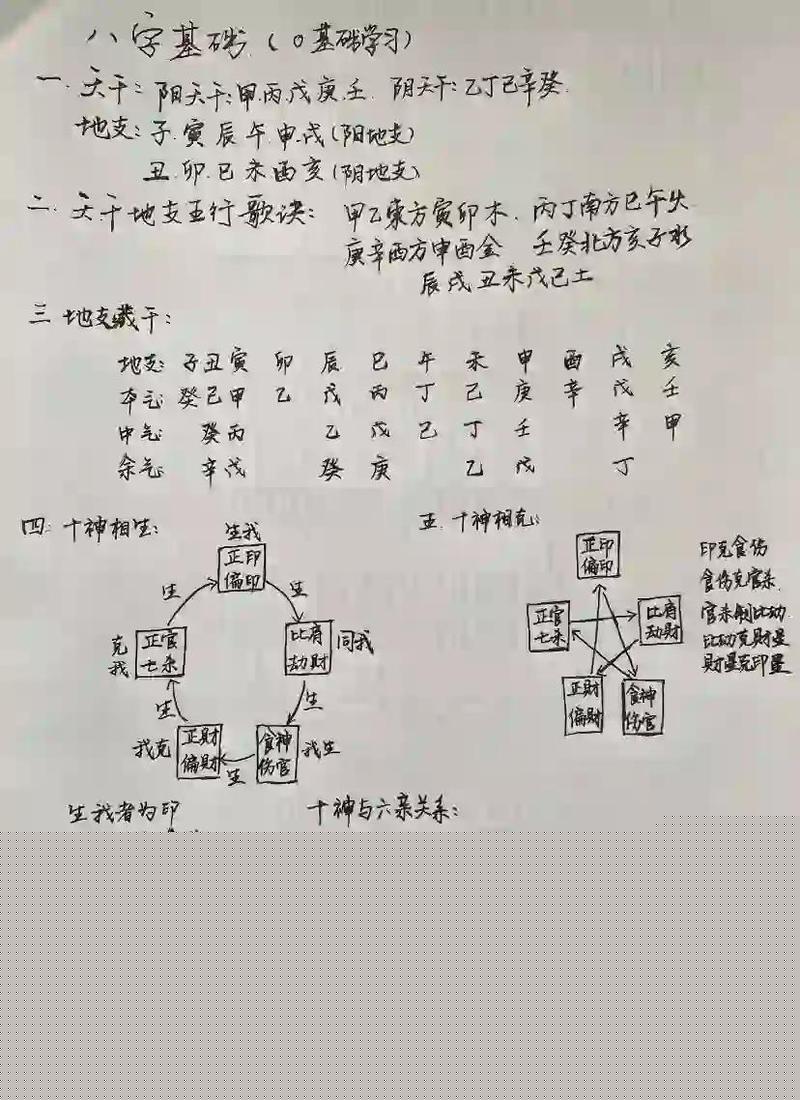 八字基础(0基础学习)
一.天干:阳天干:甲.丙.戊.庚.壬. 阴天干:乙丁己辛癸.
地支:子.寅.辰.午.申.戌(阳地支)
丑.卯.巳.未酉亥(阴地支)
二.天干地支五行歌诀: 甲乙东方寅卯木. 丙丁南方巳午火
庚辛西方申酉金 壬癸北方亥子水
辰戌丑未戊己土
三.地支藏干:
地支: 子 丑 寅 卯 辰 巳 午 未 申 酉 戌 亥
本气: 癸 己 甲 乙 戊 丙 丁 己 庚 辛 戊 壬
中气: 癸 丙 乙 戊 己 丁 壬 辛 甲
余气: 辛 戊 癸 庚 乙 戊 丁
四:十神相生:
生我
正印
偏印
生
生
克我
正官
七杀
比肩
劫财
同我
生
生
我克
正财
偏财
食神
伤官
我生
生
五.十神相克:
正印
偏印
正官
七杀
比肩
劫财
正财
偏财
食神
伤官
印克食伤
食伤克官杀.
官杀制比劫
比劫克财星
财星克印星
生我者为印
十神与六亲关系: